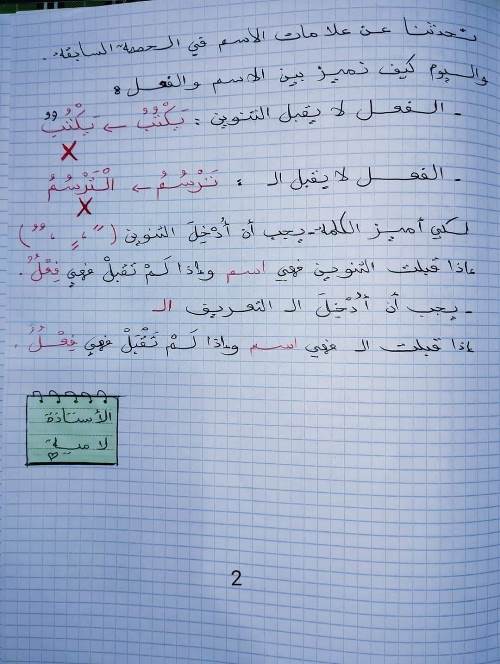 تحدثنا عن علامات الاسم في الحصة السابقة.
واليوم كيف نميز بين الاسم والفعل :
- الفعل لا يقبل التنوين : يَكْتُبُ ← يَكْتُبٌ
X
- الفعل لا يقبل الـ : نَرْسُمُ ← الْنَرْسُمُ
X
لكي أميز الكلمة - يجب أن أُدْخِلَ التنوين (ً ، ٍ ، ٌ)
إذا قبلت التنوين فهي اسم وإذا لَمْ تَقْبلْ فهي فِعْلٌ.
- يجب أن أُدْخِلَ الـ التعريف الـ
إذا قبلت الـ فهي اسم وإذا لَمْ تَقْبَلْ فهي فِعْلٌ.
الأستاذة
لامية
2